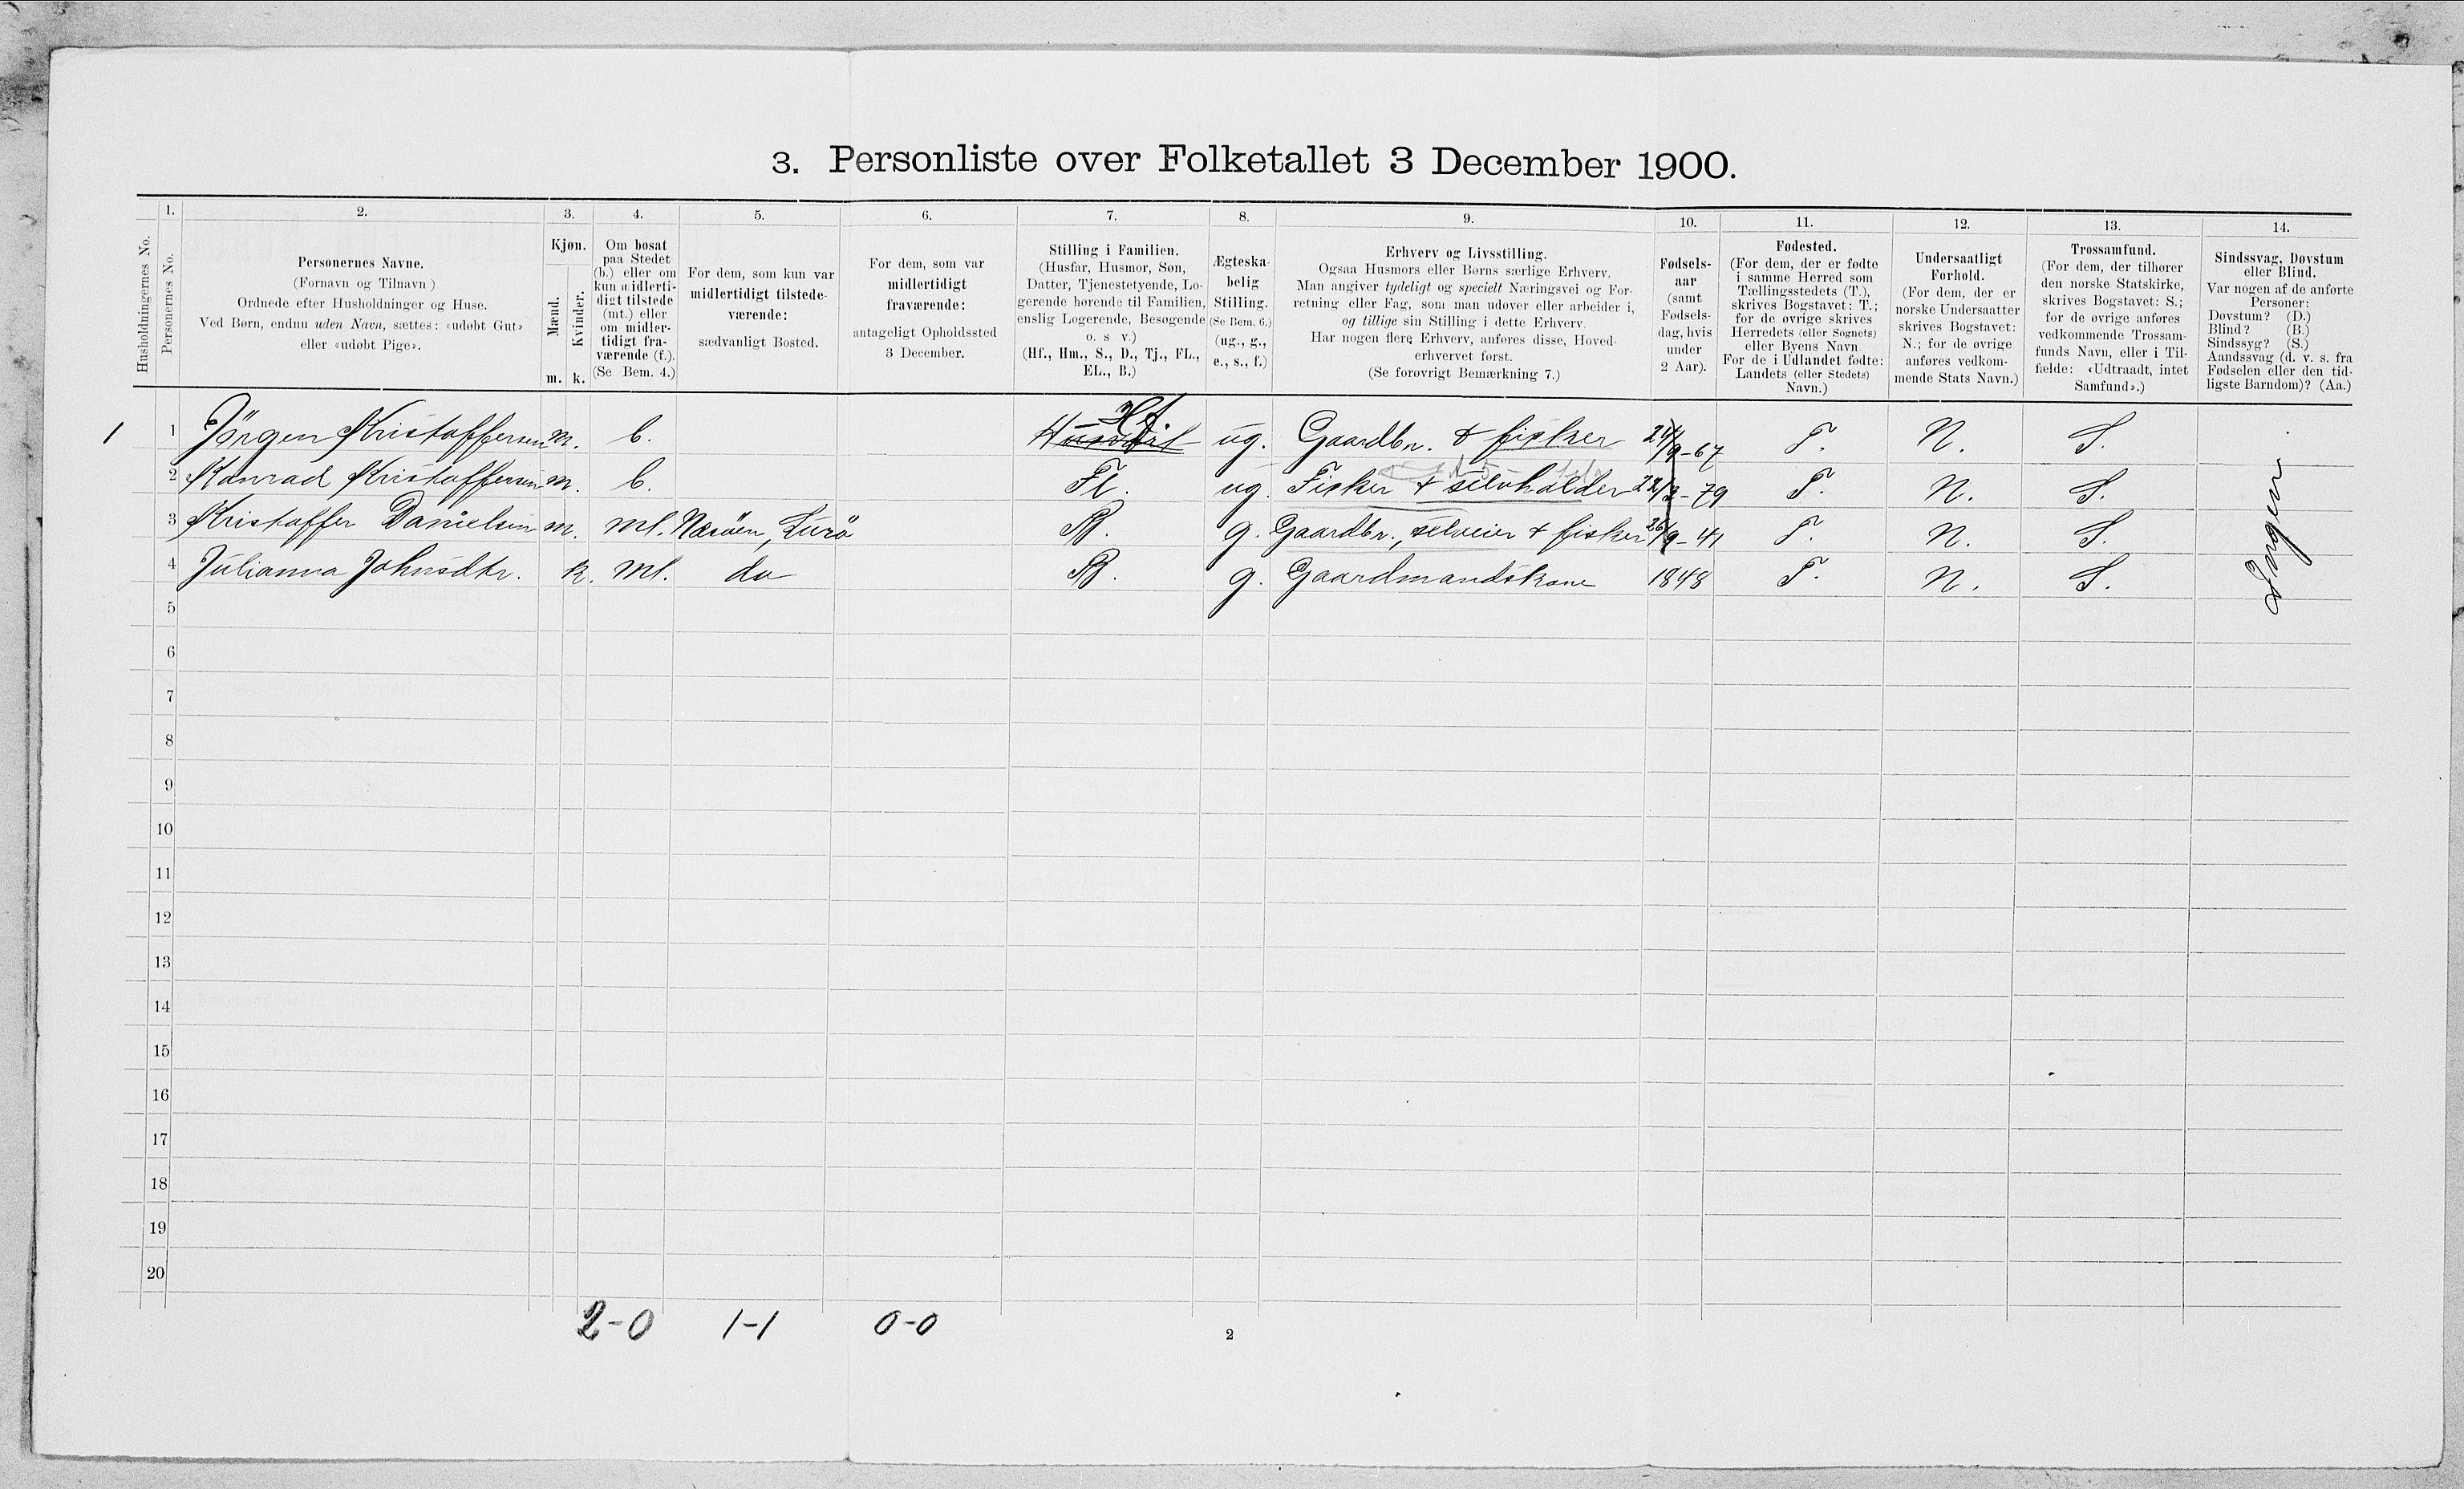 3. Personliste over Folketallet 3 December 1900.
1. 2. 3. 4. 5. 6. 7. 8. 9. 10. 11. 12. 13. 14.
Husholdningernes No.
Personernes No.
Personernes Navne.
(Fornavn og Tilnavn)
Ordnede efter Husholdninger og Huse.
Ved Børn, endnu uden Navn, sættes: «udøbt Gut»
eller «udøbt Pige».
Kjøn.
Mænd.
Kvinder.
m. k.
Om bosat
paa Stedet
(b.) eller om
kun midlerti-
digt tilstede
(mt.) eller
om midler-
tidigt fra-
værende (f.).
(Se Bem. 4.)
For dem, som kun var
midlertidigt tilstede-
værende:
sædvanligt Bosted.
For dem, som var
midlertidigt
fraværende:
antageligt Opholdssted
3 December.
Stilling i Familien.
(Husfar, Husmor, Søn,
Datter, Tjenestetyende, Lo-
gerende hørende til Familien,
enslig Logerende, Besøgende
o. s v.)
(Hf., Hm., S., D., Tj., FL.,
EL., B.)
Ægteska-
belig
Stilling.
(Se Bem. 6.)
(ug., g.,
e., s., f.)
Erhverv og Livsstilling.
Ogsaa Husmors eller Børns særlige Erhverv.
Man angiver tydeligt og specielt Næringsvei og For-
retning eller Fag, som man udøver eller arbeider i,
og tillige sin Stilling i dette Erhverv.
Har nogen flere Erhverv, anføres disse, Hoved-
erhvervet først.
(Se forøvrigt Bemærkning 7.)
Fødsels-
aar
(samt
Fødsels-
dag, hvis
under
2 Aar).
Fødested.
(For dem, der er fødte
i samme Herred som
Tællingsstedets (T.),
skrives Bogstavet: T.;
for de øvrige skrives
Herredets (eller Sognets)
eller Byens Navn
For de i Udlandet fødte:
Landets (eller Stedets)
Navn.)
Undersaatligt
Forhold.
(For dem, der er
norske Undersaatter
skrives Bogstavet:
N.; for de øvrige
anføres vedkom-
mende Stats Navn.)
Trossamfund.
(For dem, der tilhører
den norske Statskirke,
skrives Bogstavet: S.;
for de øvrige anføres
vedkommende Trossam-
funds Navn, eller i Til-
fælde: «Udtraadt, intet
Samfund».)
Sindssvag, Døvstum
eller Blind.
Var nogen af de anførte
Personer:
Døvstum? (D.)
Blind? (B.)
Sindssyg? (S.)
Aandssvag (d. v. s. fra
Fødselen eller den tid-
ligste Barndom)? (Aa.)
Hf
1 1 Jörgen Kristoffersen m. b. ug. Gaardbr. & fisker 24/9-67 T. N. S.
2 Konrad Kristoffersen m. b. Fl. ug. Fisker & selvholder -79 T. N. S.
3 Kristoffer Danielsen m. mt. Næsöen, Lurö B. g. Gaardbr., selveier & fisker 26/9-41 T. N. S.
4 Julianna Johnsdtr. k. mt. do B. g. Gaardmandskone 1848 T. N. S.
Ingen
5
6
7
8
9
10
11
12
13
14
15
16
17
18
19
20
2-0 1-1 0-0
2